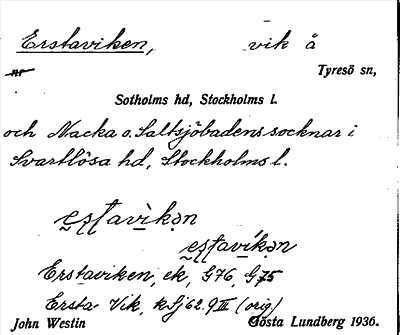 Erstaviken, vik å
nr Tyresö sn,
Sotholms hd, Stockholms l.
och Nacka o. Saltsjöbadens socknar i
Svartlösa hd, Stockholms l.
Erstaviken, ek, G76, G75
Ersta Vik, kSj 62. 9 III (orig)
John Westin Gösta Lundberg 1936.